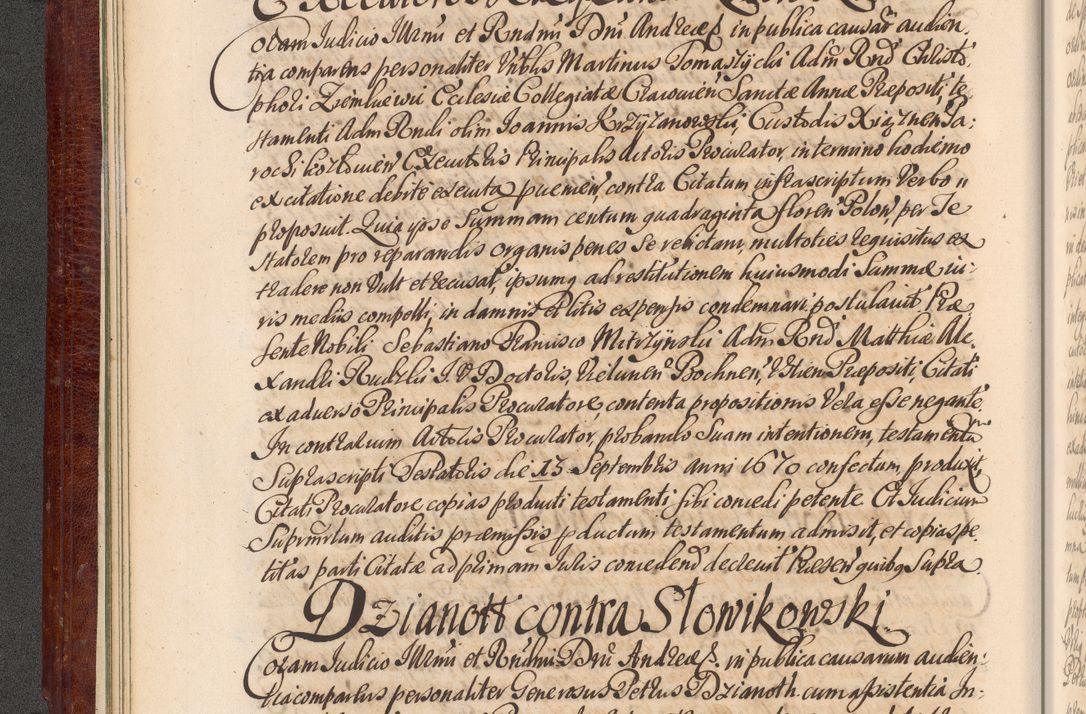 Coram Iudicio Illrmi et Rndmi Dni Andreæ S. in publica causar audien,
tia comparens personaliter Vrblis Martinus Tomaszycki Adm Rnd Christo,
phori Ecclesiæ Collegiatæ Cracovien Sanctæ Annæ Præpositi, te
stamenti Adm Rndi olim Ioannis Krzyżanowski, Custodis Pa:
Executoris Principalis Actoris Procurator, in termino hodierno
ex citatione debite executa contra Citatum infrascriptum Verbo
proposuit. Quia ipse Summam centum quadraginta floren Polon, per Te
statorem pro reparandis organis penes se relictam, multoties requisitus ex
tradere non vult et recusat, ipsumq ad restitutionem huiusmodi Summæ iu:
ris mediis compelli, in damnis et litis expensis condemnari postulavit. Præ
sente Nobili Sebastiano Francisco Mitrzynski Adm Rnd Matthiæ Ale,
xandri Rudzki I.V.Doctoris, Vielunen Bochnen, Præpositi, Citati
ex adverso Principalis Procuratore, contenta propositionis vera esse negante.
In contrarium Actoris Procurator, probando Suam intentionem, testamentu
Suprascripti Testatoris die 13 Septembris anni 1670 confectum, produxit,
Citati Procuratore copias producti testamenti sibi concedi petente. Et Iudicium
auditis præmissis pductum testamentum admisit, et copias pe
titas parti Citatæ ad primam Iuris concedend decrevit Præsen quibq Supra.
Dzianott contra Słowikowski.
Coram Iudicio Illrmi et Rndmi Dni Andreæ S. in publica causarum audien:
tia comparens personaliter Generosus Petrus Dzianoth cum assistentia In: